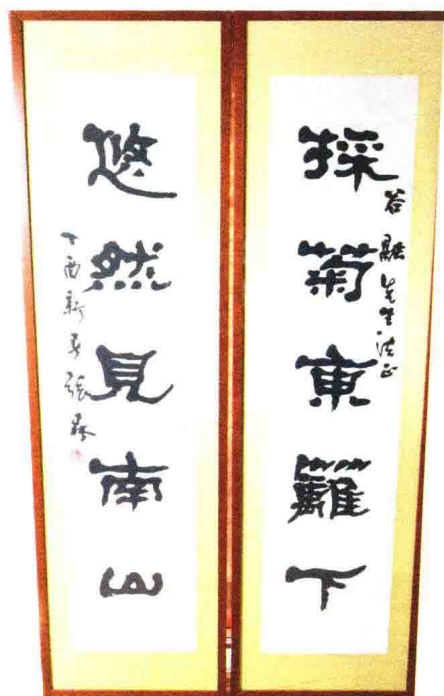 採菊東籬下
谷融先生法正
悠然見南山
丁酉新春張森